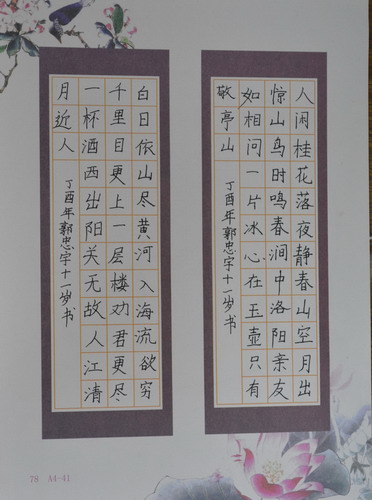 人闲桂花落夜静春山空月出
惊山鸟时鸣春涧中洛阳亲友
如相问一片冰心在玉壶只有
敬亭山
丁酉年郭忠宇十一岁书
白日依山尽黄河入海流欲穷
千里目更上一层楼劝君更尽
一杯酒西出阳关无故人江清
月近人
丁酉年郭忠宇十一岁书
78 A4-41